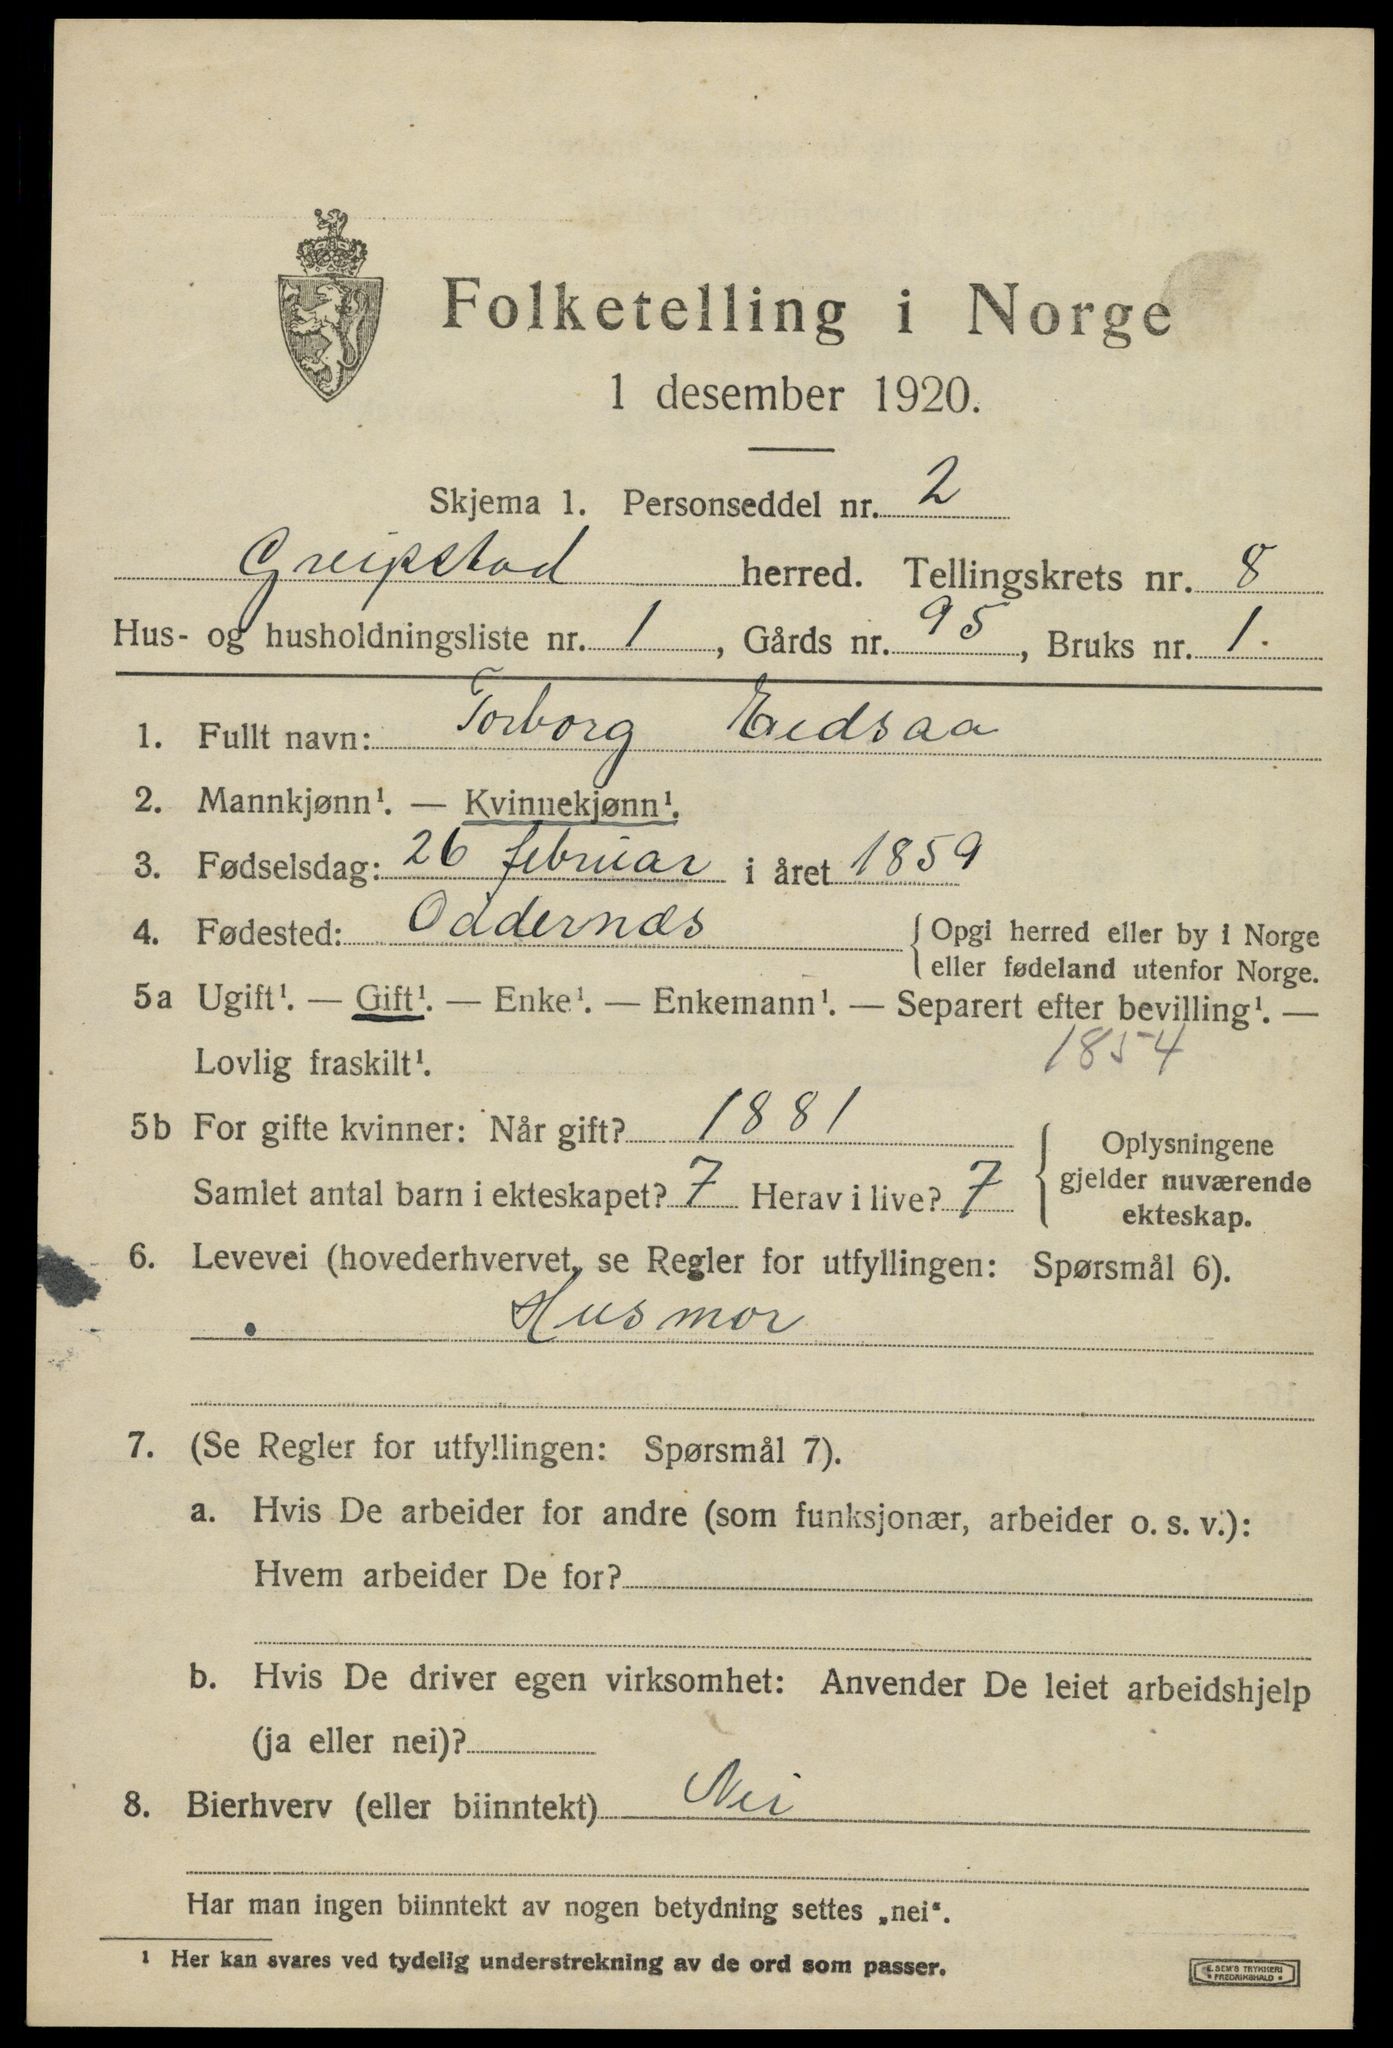 Folketelling i Norge
1 desember 1920.
Skjema 1. Personseddel nr. 2
Greipstad herred. Tellingskrets nr. 8
Hus- og husholdningsliste nr. 1, Gårds nr. 95, Bruks nr. 1.
1. Fullt navn: Torborg Eidsaa
2. Mannkjønn¹. — Kvinnekjønn¹.
3. Fødselsdag: 26 februar i året 1859
4. Fødested: Oddernæs { Opgi herred eller by i Norge
eller fødeland utenfor Norge.
5a Ugift¹. — Gift¹. — Enke¹. — Enkemann¹. — Separert efter bevilling¹. —
Lovlig fraskilt¹. 1854
5b For gifte kvinner: Når gift? 1881
Samlet antal barn i ekteskapet? 7 Herav i live? 7
{ Oplysningene
gjelder nuværende
ekteskap.
6. Levevei (hovederhvervet, se Regler for utfyllingen: Spørsmål 6).
Husmor
7. (Se Regler for utfyllingen: Spørsmål 7).
a. Hvis De arbeider for andre (som funksjonær, arbeider o. s. v.):
Hvem arbeider De for?
b. Hvis De driver egen virksomhet: Anvender De leiet arbeidshjelp
(ja eller nei)?
8. Bierhverv (eller biinntekt) Nei
Har man ingen biinntekt av nogen betydning settes „nei“.
¹ Her kan svares ved tydelig understrekning av de ord som passer.
E. SEM'S TRYKKERI
FREDRIKSHALD